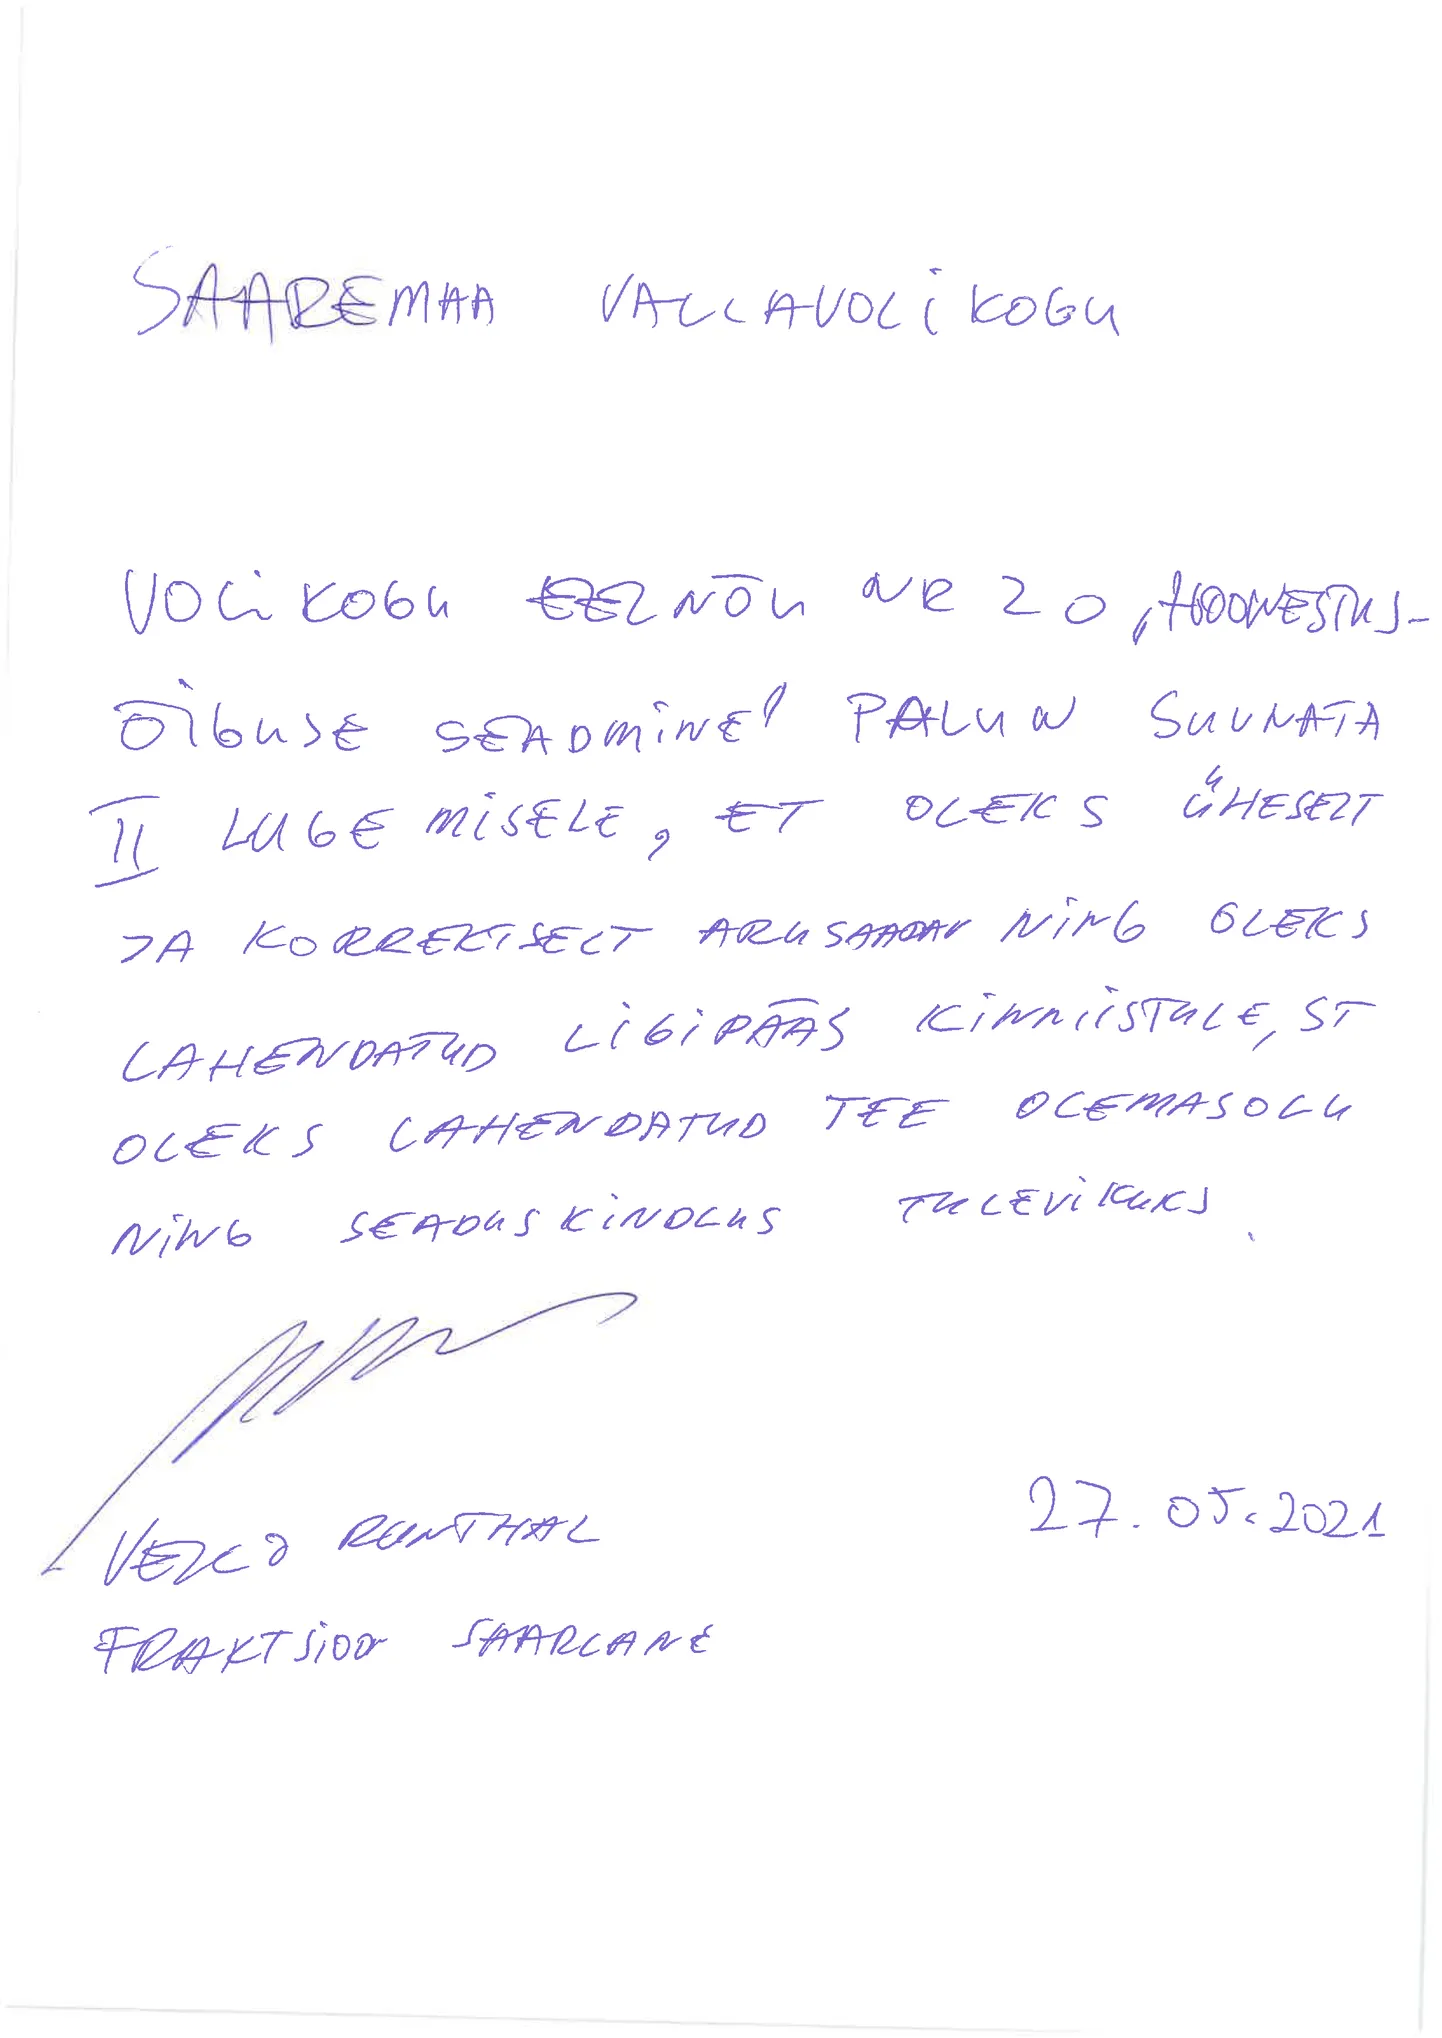 SAAREMAA VALLAVOLIKOGU
VOLIKOGU EELNÕU NR 20 „HOONESTUS-
ÕIGUSE SEADMINE" PALUN SUUNATA
II LUGEMISELE, ET OLEKS ÜHESELT
JA KORREKTSELT ARUSAADAV NING OLEKS
LAHENDATUD LIGIPÄÄS KINNIISTULE, ST
OLEKS LAHENDATUD TEE OLEMASOLU
NING SEADUSKINDLUS TULEVIKUKS.
VELLO RUNTHAL
27.05.2021
FRAKTSIOON SAARLANE